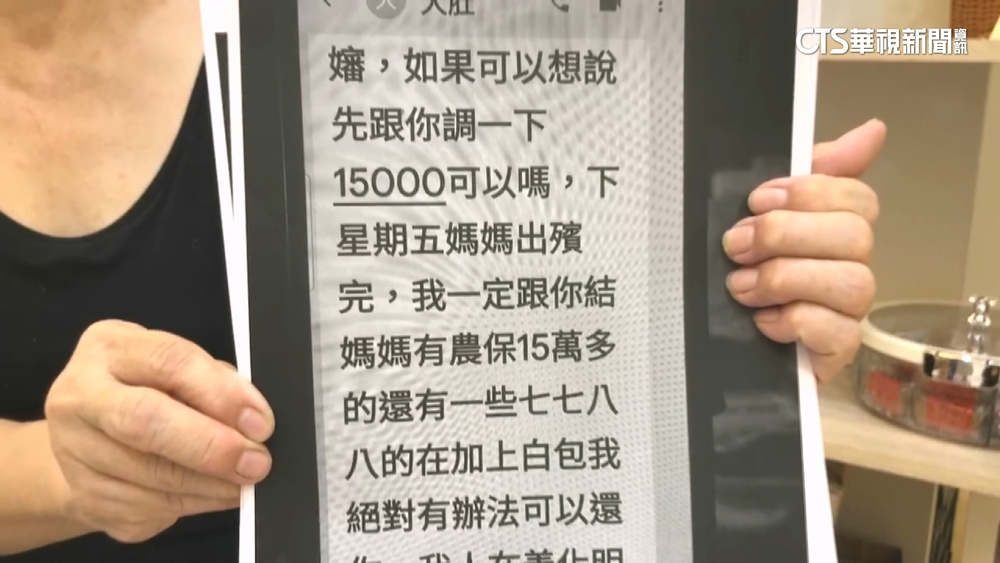 CTS華視新聞資訊
大肚
嬸，如果可以想說
先跟你調一下
15000可以嗎，下
星期五媽媽出殯
完，我一定跟你結
媽媽有農保15萬多
的還有一些七七八
八的在加上白包我
絕對有辦法可以還